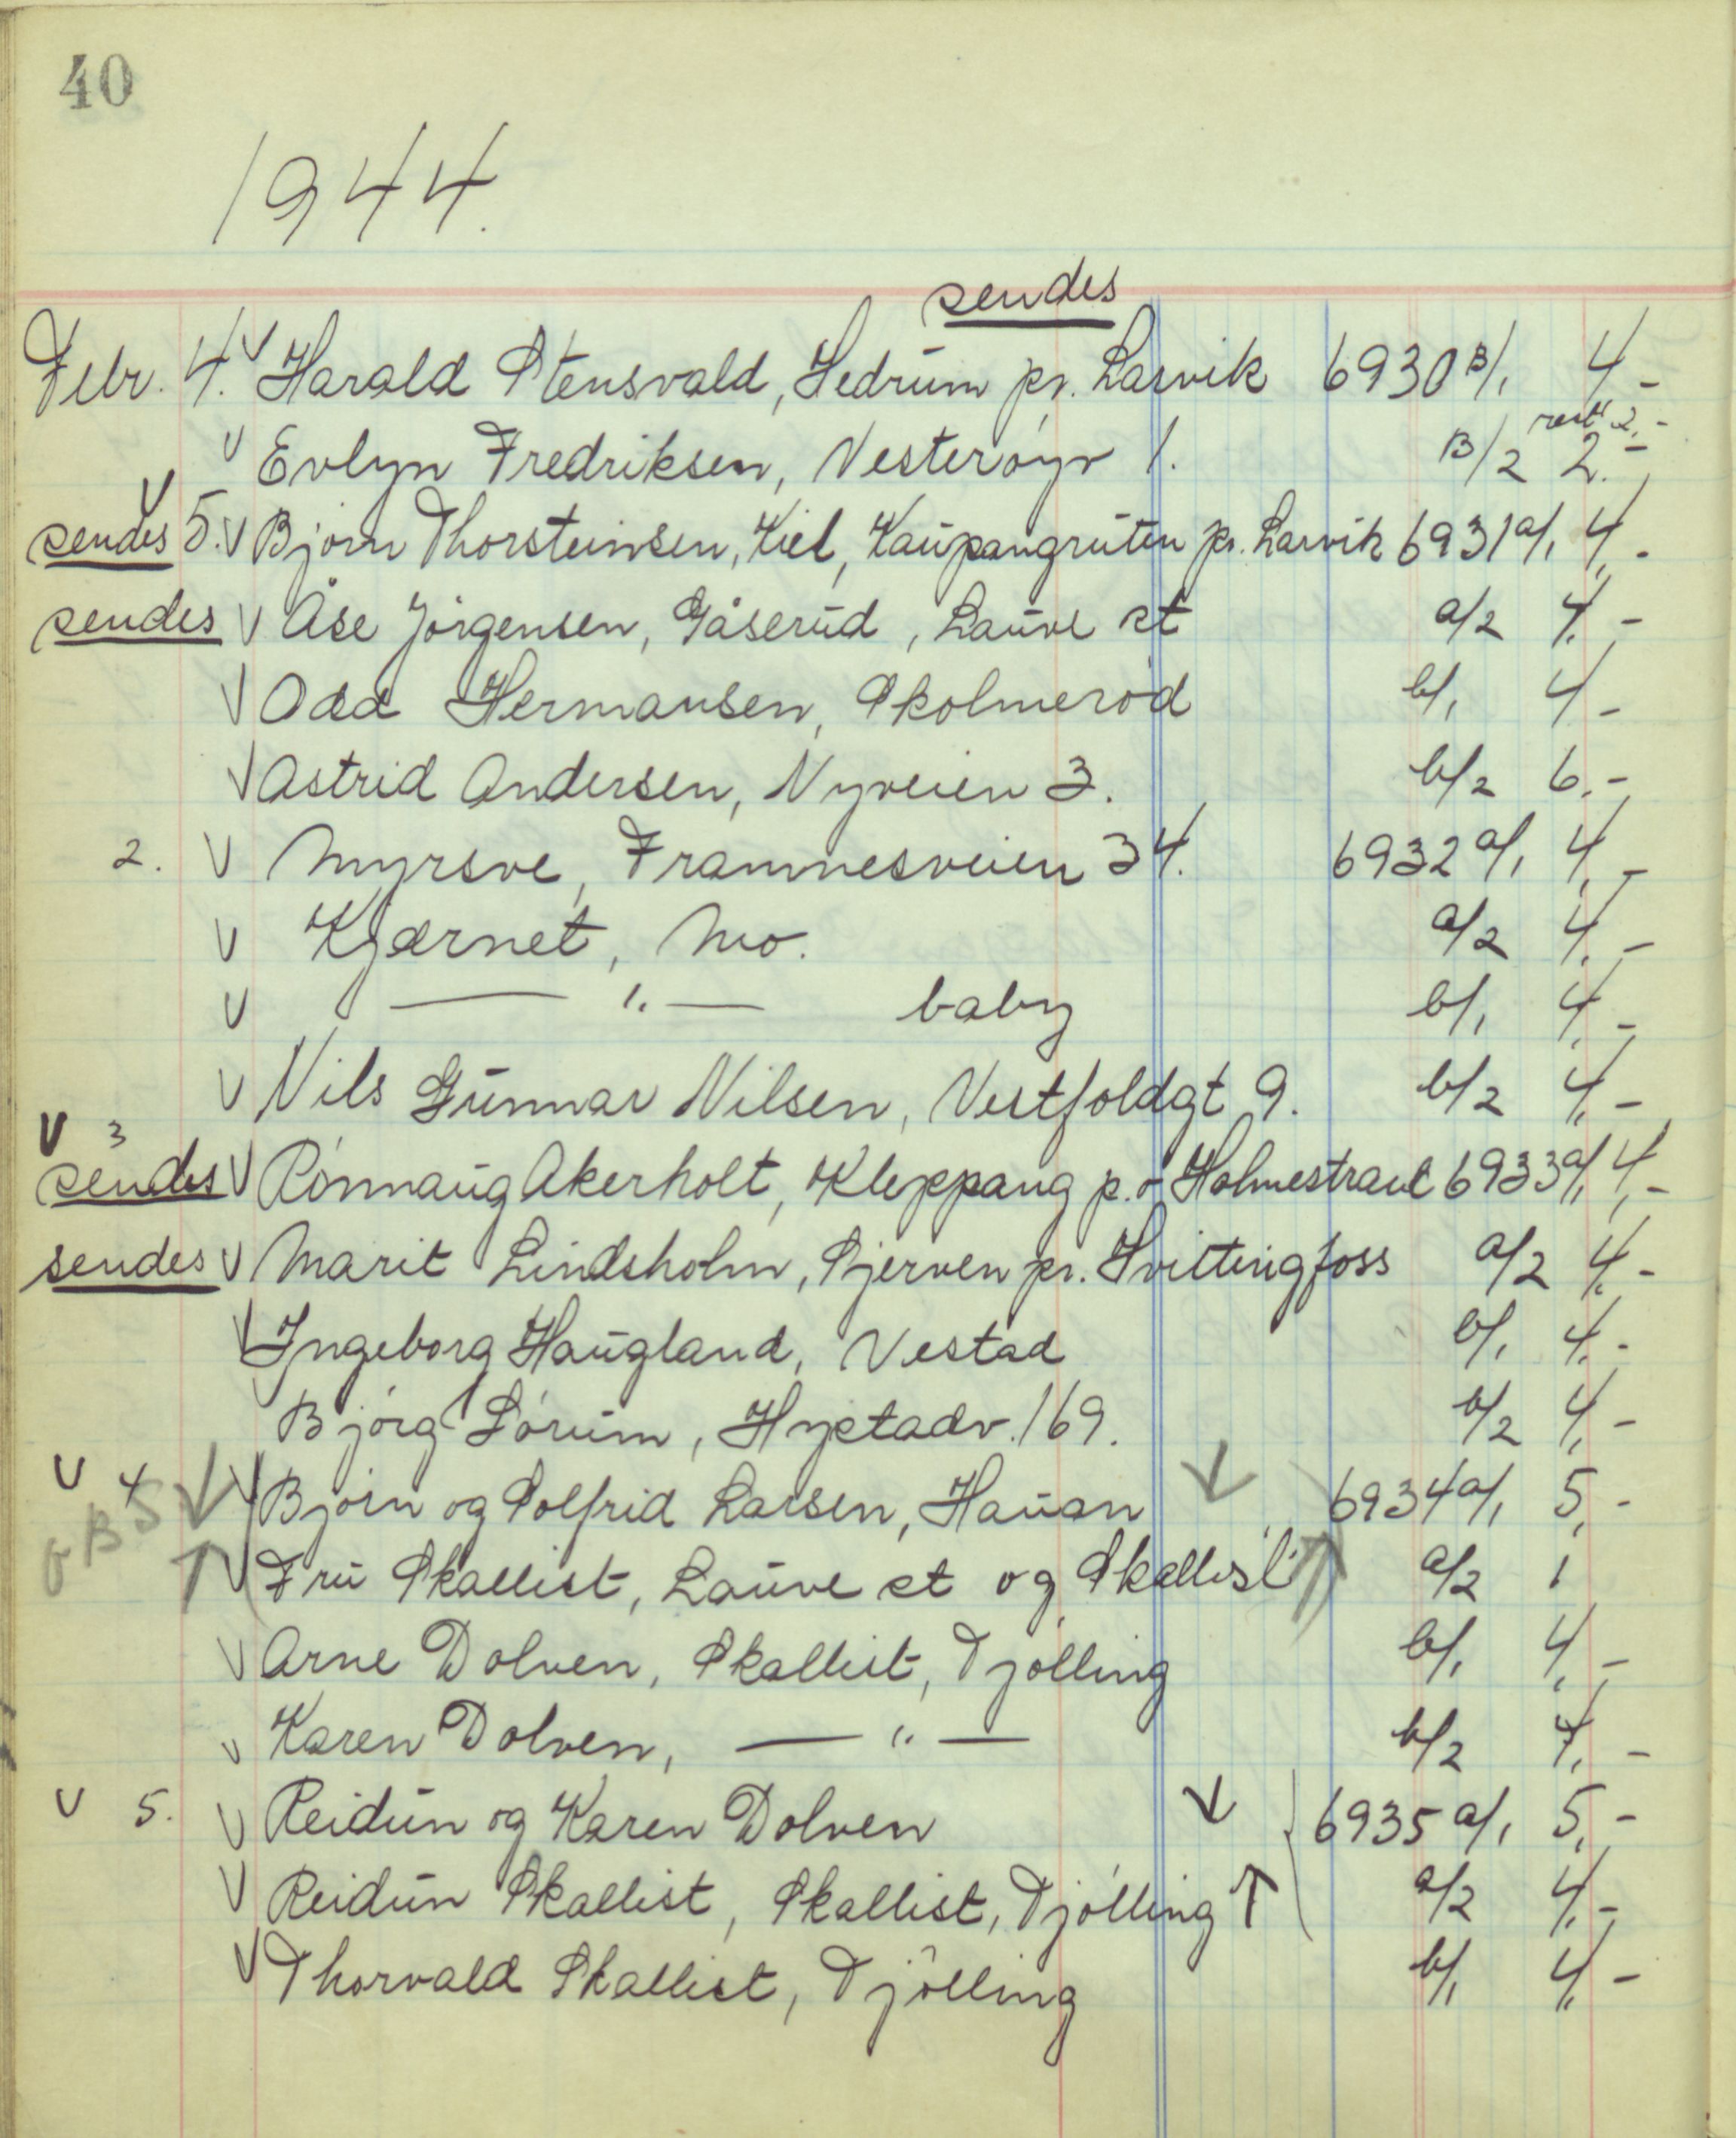 40
1944.
sendes
Febr. 4. V Harald Stensvald, Hedrum pr. Larvik 6930 B/1 4,-
rest 2,-
V Evlyn Fredriksen, Vesterøyv 1. B/2 2.-
V
sendes 5. V Bjørn Thorsteinsen, Kiel, Kaupangruten pr. Larvik 6931 a/1 4,-
sendes V Åse Jørgensen, Gåserud, Lauve st a/2 4,-
V Odd Hermansen, Skolmerød b/1 4,-
V Astrid Andersen, Nyveien 3. b/2 6.-
2. V Myrsve, Framnesveien 34. 6932 a/1 4,-
V Kjærnet, Mo. a/2 4,-
V — " — baby b/1 4,-
V Nils Gunnar Nilsen, Vestfoldgt 9. b/2 4,-
V 3
sendes V Rønnaug Akerholt, Kleppang p.o Holmestrand 6933 a/1 4,-
sendes V Marit Lindsholm, Bjerven pr. Hvittingfoss a/2 4,-
V Ingeborg Haugland, Vestad b/1 4.-
Bjørg Sørum, Hystadv. 169. b/2 4,-
V 4 ↓ V Bjørn og Solfrid Larsen, Hauan ↓ 6934 a/1 5,-
OBS
↑ V Fru Skallist, Lauve st og Skallist ↑ a/2 1
V Arne Dolven, Skallist, Tjølling b/1 4,-
V Karen Dolven, — " — b/2 4,-
V 5. V Reidun og Karen Dolven ↓ 6935 a/1 5,-
V Reidun Skallist, Skallist, Tjølling ↑ a/2 4,-
V Thorvald Skallist, Tjølling b/1 4,-